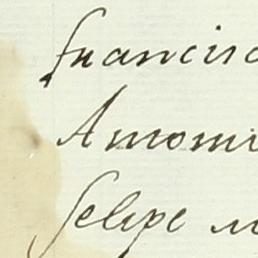 Francisc
Antoni
Felipe